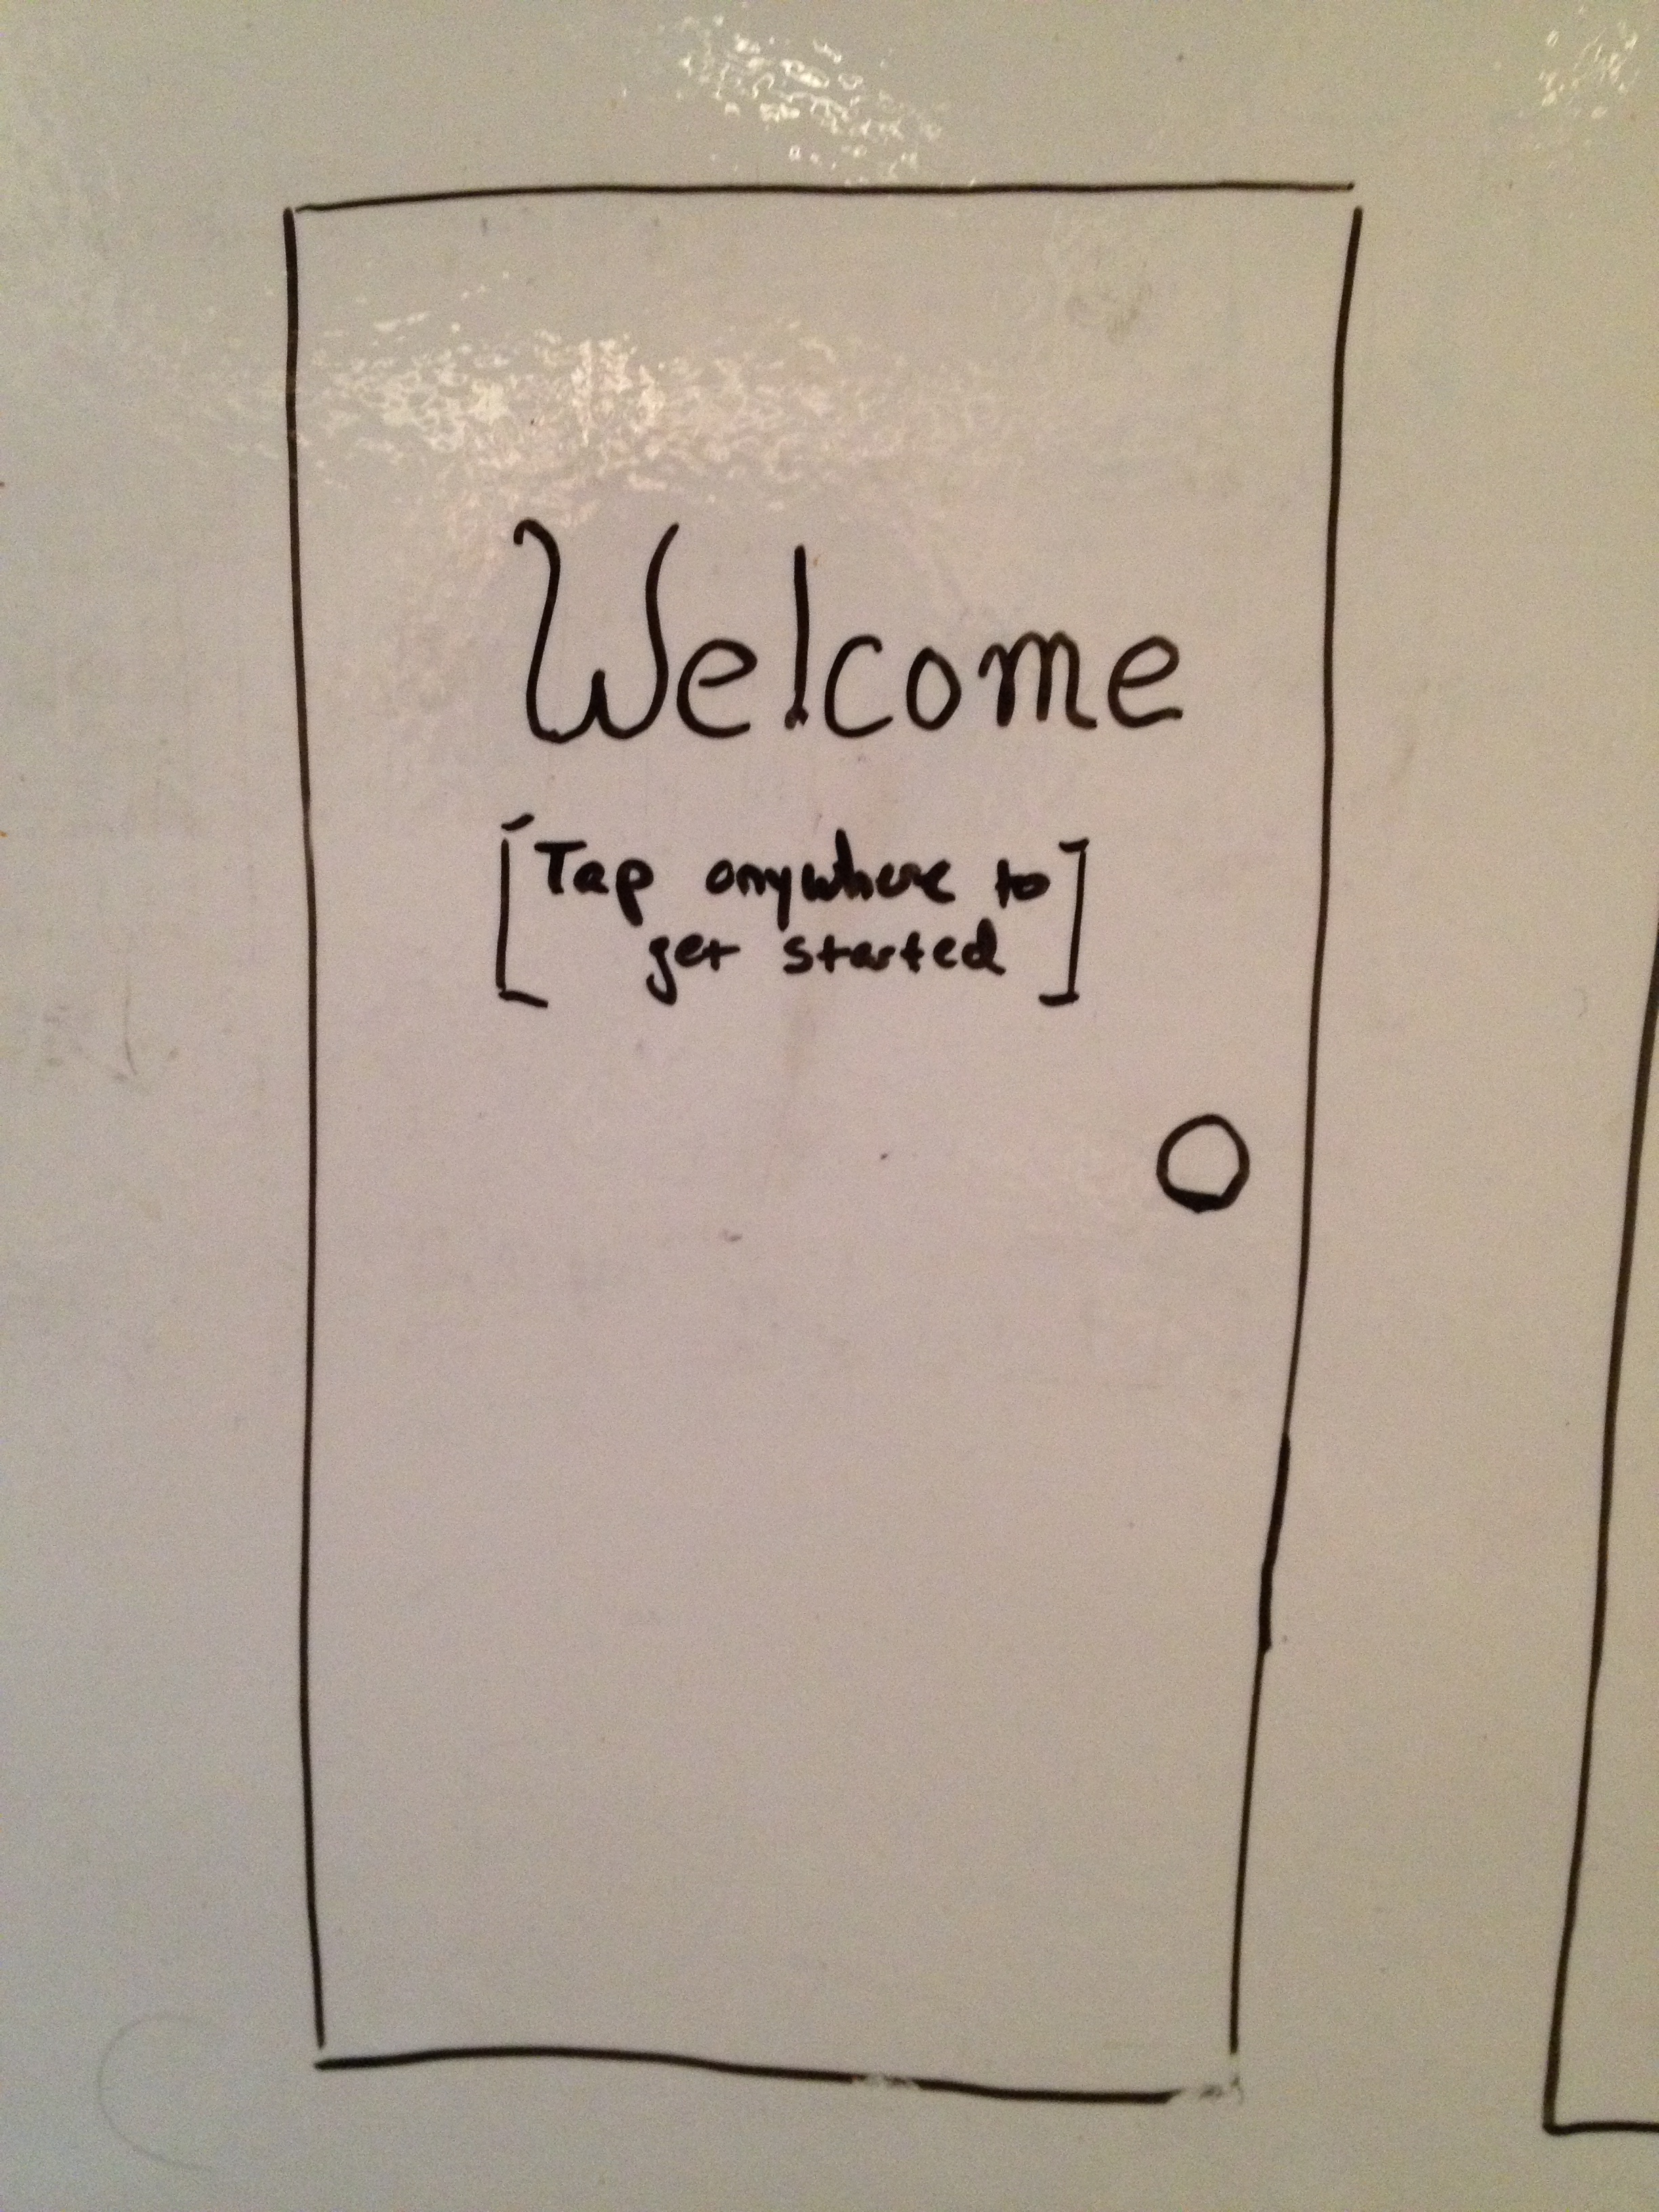 Welcome
[Tap anywhere to
get started]